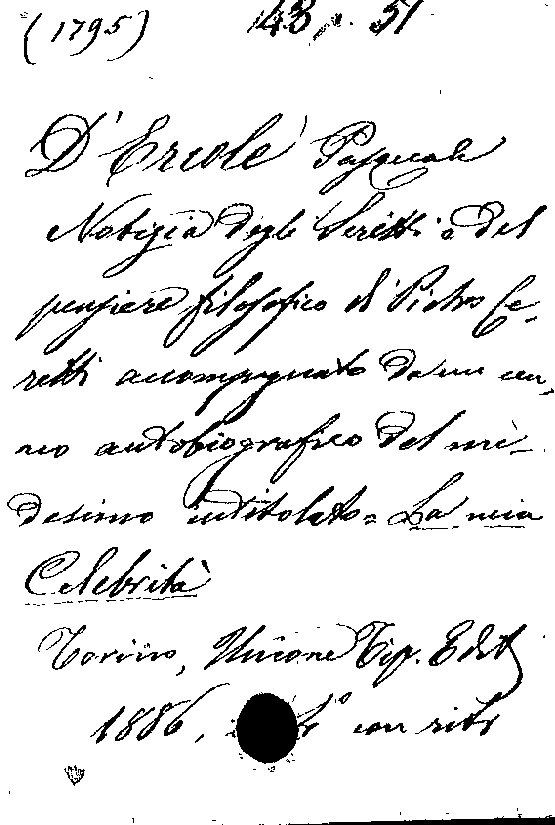 (1795) 143 p. 51
D'Ercole Pasquale
Notizia degli Scritti e del
pensiero filosofico di Pietro Ce-
retti accompagnata da un cen,
no autobiografico del me-
desimo intitolato = La mia
Celebrità
Torino, Unione Tip. Edit
1886, con ritr